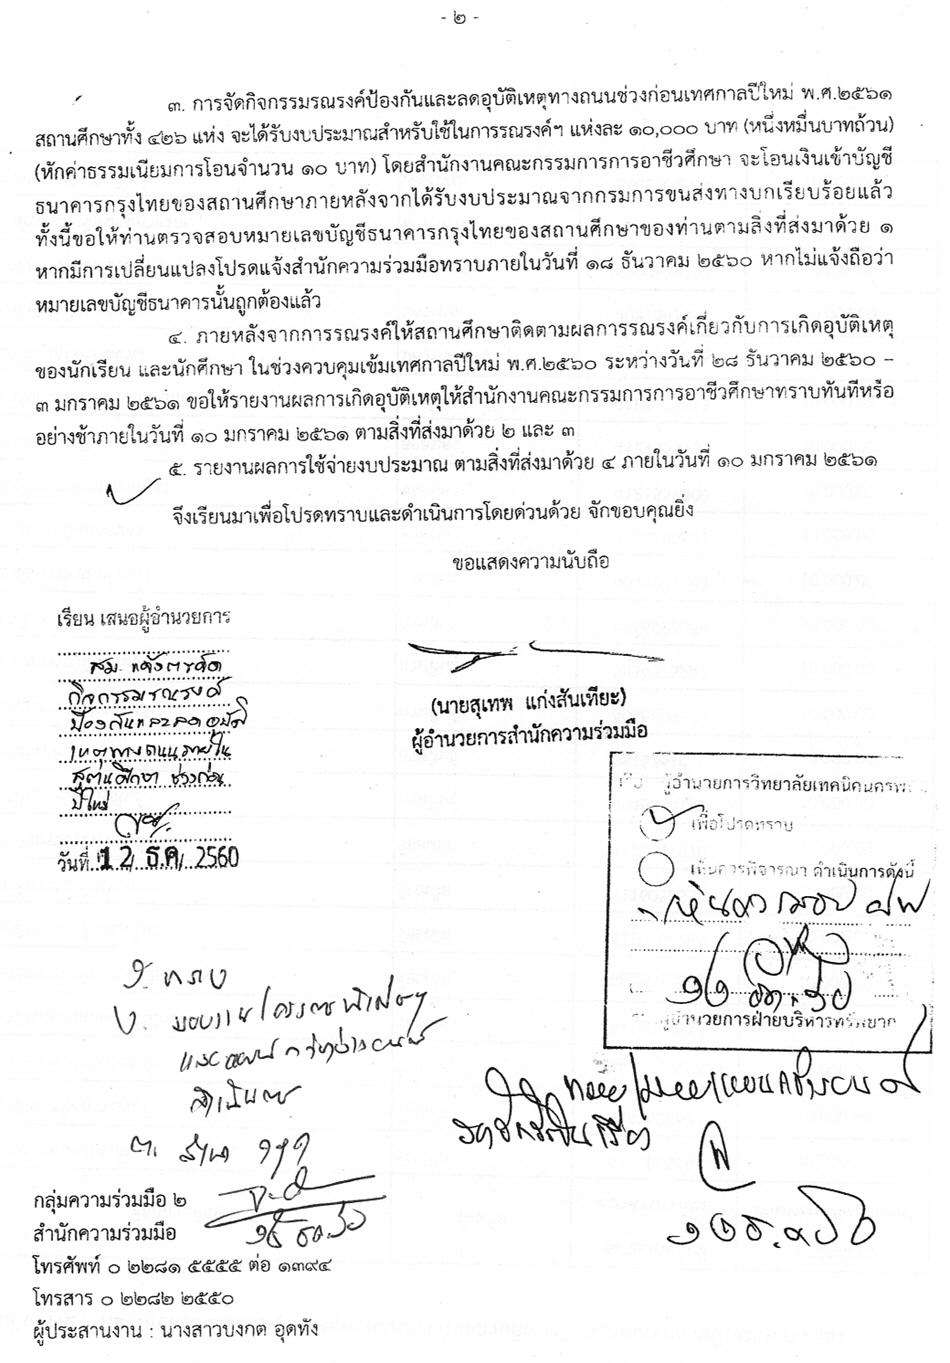 - ๒ -
๓. การจัดกิจกรรมรณรงค์ป้องกันและลดอุบัติเหตุทางถนนช่วงก่อนเทศกาลปีใหม่ พ.ศ.๒๕๖๑
สถานศึกษาทั้ง ๔๒๖ แห่ง จะได้รับงบประมาณสำหรับใช้ในการรณรงค์ฯ แห่งละ ๑๐,๐๐๐ บาท (หนึ่งหมื่นบาทถ้วน)
(หักค่าธรรมเนียมการโอนจำนวน ๑๐ บาท) โดยสำนักงานคณะกรรมการการอาชีวศึกษา จะโอนเงินเข้าบัญชี
ธนาคารกรุงไทยของสถานศึกษาภายหลังจากได้รับงบประมาณจากกรมการขนส่งทางบกเรียบร้อยแล้ว
ทั้งนี้ขอให้ท่านตรวจสอบหมายเลขบัญชีธนาคารกรุงไทยของสถานศึกษาของท่านตามสิ่งที่ส่งมาด้วย ๑
หากมีการเปลี่ยนแปลงโปรดแจ้งสำนักความร่วมมือทราบภายในวันที่ ๑๘ ธันวาคม ๒๕๖๐ หากไม่แจ้งถือว่า
หมายเลขบัญชีธนาคารนั้นถูกต้องแล้ว
๔. ภายหลังจากการรณรงค์ให้สถานศึกษาติดตามผลการรณรงค์เกี่ยวกับการเกิดอุบัติเหตุ
ของนักเรียน และนักศึกษา ในช่วงควบคุมเข้มเทศกาลปีใหม่ พ.ศ.๒๕๖๐ ระหว่างวันที่ ๒๘ ธันวาคม ๒๕๖๐ –
๓ มกราคม ๒๕๖๑ ขอให้รายงานผลการเกิดอุบัติเหตุให้สำนักงานคณะกรรมการการอาชีวศึกษาทราบทันทีหรือ
อย่างช้าภายในวันที่ ๑๐ มกราคม ๒๕๖๑ ตามสิ่งที่ส่งมาด้วย ๒ และ ๓
๕. รายงานผลการใช้จ่ายงบประมาณ ตามสิ่งที่ส่งมาด้วย ๔ ภายในวันที่ ๑๐ มกราคม ๒๕๖๑
จึงเรียนมาเพื่อโปรดทราบและดำเนินการโดยด่วนด้วย จักขอบคุณยิ่ง
ขอแสดงความนับถือ
(นายสุเทพ แก่งสันเทียะ)
ผู้อำนวยการสำนักความร่วมมือ
เรียน เสนอผู้อำนวยการ
กิจกรรมรณรงค์
ป้องกันและลดอุบัติ
เหตุทางถนนภายใน
สถานศึกษา ช่วงก่อน
ปีใหม่
วันที่ 12 ธ.ค. 2560
ผู้อำนวยการวิทยาลัยเทคนิคนครพ
เพื่อโปรดทราบ
เห็นควรพิจารณา ดำเนินการดังนี้
ผู้อำนวยการฝ่ายบริหารทรัพยากร
ทราบ
ดำเนินการ
กลุ่มความร่วมมือ ๒
สำนักความร่วมมือ
โทรศัพท์ ๐ ๒๒๘๑ ๕๕๕๕ ต่อ ๑๓๙๔
โทรสาร ๐ ๒๒๘๒ ๒๕๕๐
ผู้ประสานงาน : นางสาวบงกต อุดทัง